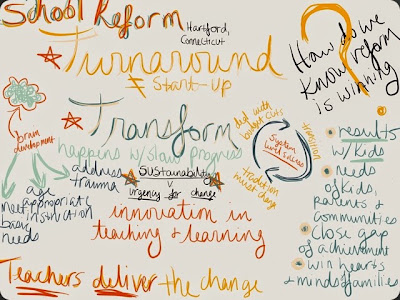 School Reform
Hartford,
Connecticut
Turnaround
Start-up
?
How do we
know reform
is winning
Transform
happens w/ slow progress
brain
development
address
trauma
Sustainability
v
urgency for change
age
appropriate
instruction
meet
basic
needs
innovation in
teaching & learning
deal with
budget cuts
transition
tradition
resist change
System
results
w/ kids
needs
of kids,
parents &
communities
close gap
of achievement
win hearts
& minds of families
Teachers deliver the change